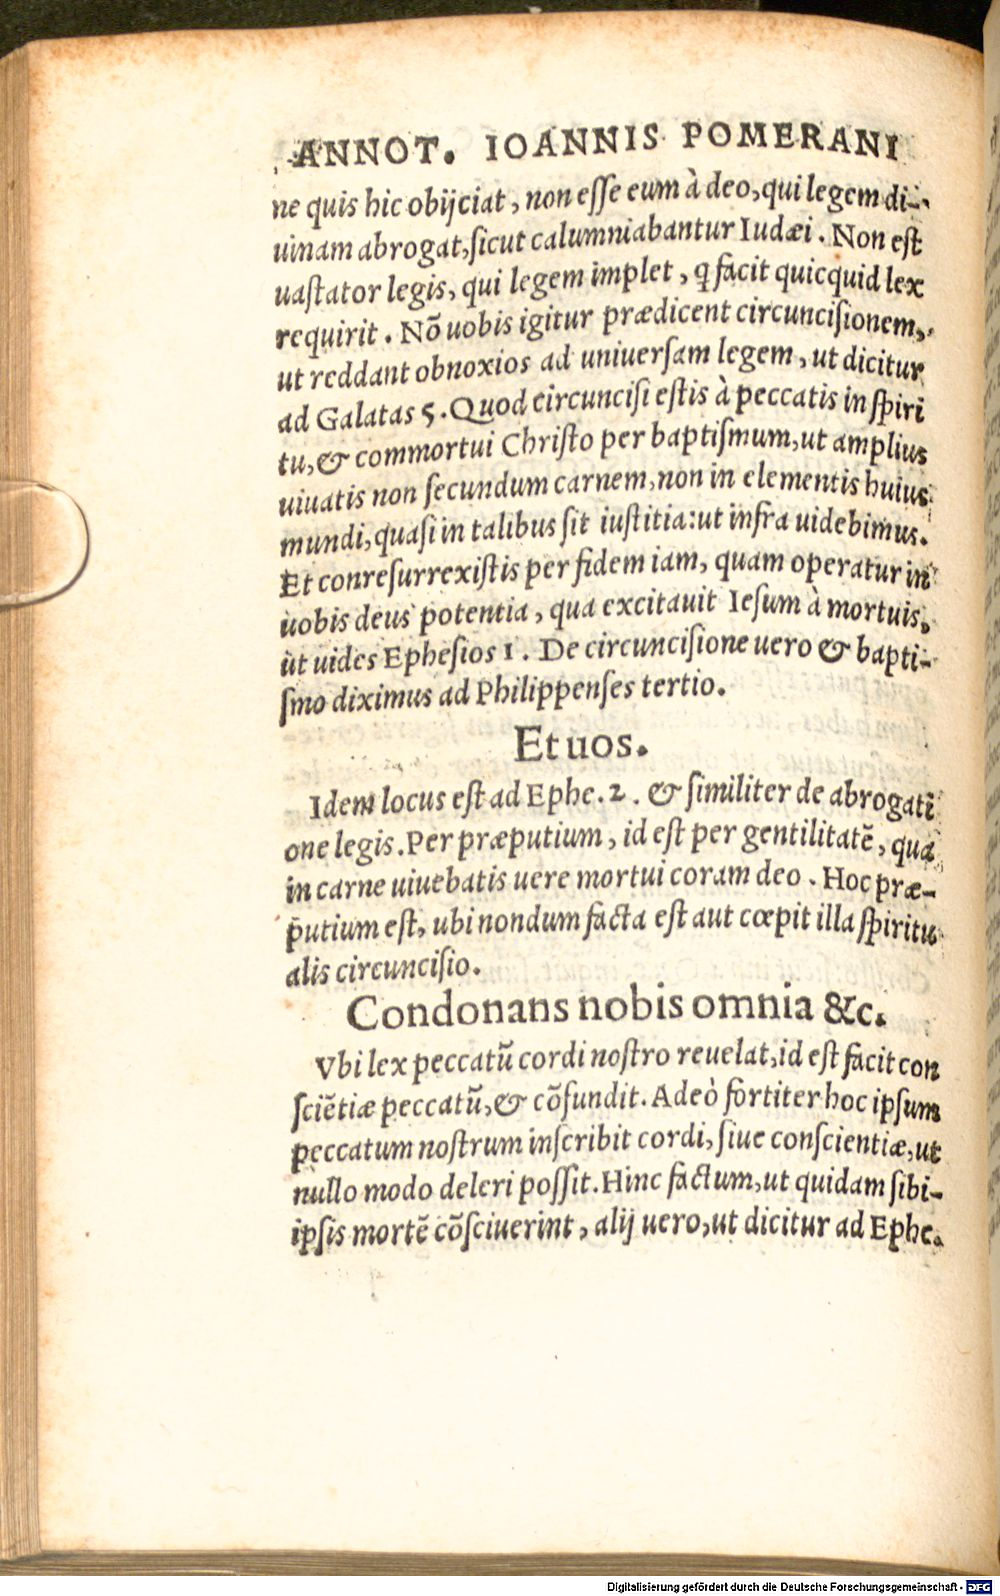 ANNOT. IOANNIS POMERANI
ne quis hic obijciat, non esse eum à deo, qui legem di-
uinam abrogat, sicut calumniabantur Iudæi. Non est
uastator legis, qui legem implet, q facit quicquid lex
requirit. Nō uobis igitur prædicent circuncisionem,
ut reddant obnoxios ad uniuersam legem, ut dicitur
ad Galatas 5. Quod circuncisi estis à peccatis in spiri
tu, & commortui Christo per baptismum, ut amplius
uiuatis non secundum carnem, non in elementis huius
mundi, quasi in talibus sit iustitia: ut infra uidebimus.
Et conresurrexistis per fidem iam, quam operatur in
uobis deus potentia, qua excitauit Iesum à mortuis,
ut uides Ephesios 1. De circuncisione uero & bapti-
smo diximus ad Philippenses tertio.
Et uos.
Idem locus est ad Ephe. 2. & similiter de abrogati
one legis. Per præputium, id est per gentilitatē, qua
in carne uiuebatis uere mortui coram deo. Hoc præ-
putium est, ubi nondum facta est aut cœpit illa spiritu
alis circuncisio.
Condonans nobis omnia &c.
Vbi lex peccatū cordi nostro reuelat, id est facit con
sciētiæ peccatū, & cōfundit. Adeò fortiter hoc ipsum
peccatum nostrum inscribit cordi, siue conscientiæ, ut
nullo modo deleri possit. Hinc factum, ut quidam sibi-
ipsis mortē cōsciuerint, alij uero, ut dicitur ad Ephe.
Digitalisierung gefördert durch die Deutsche Forschungsgemeinschaft - DFG